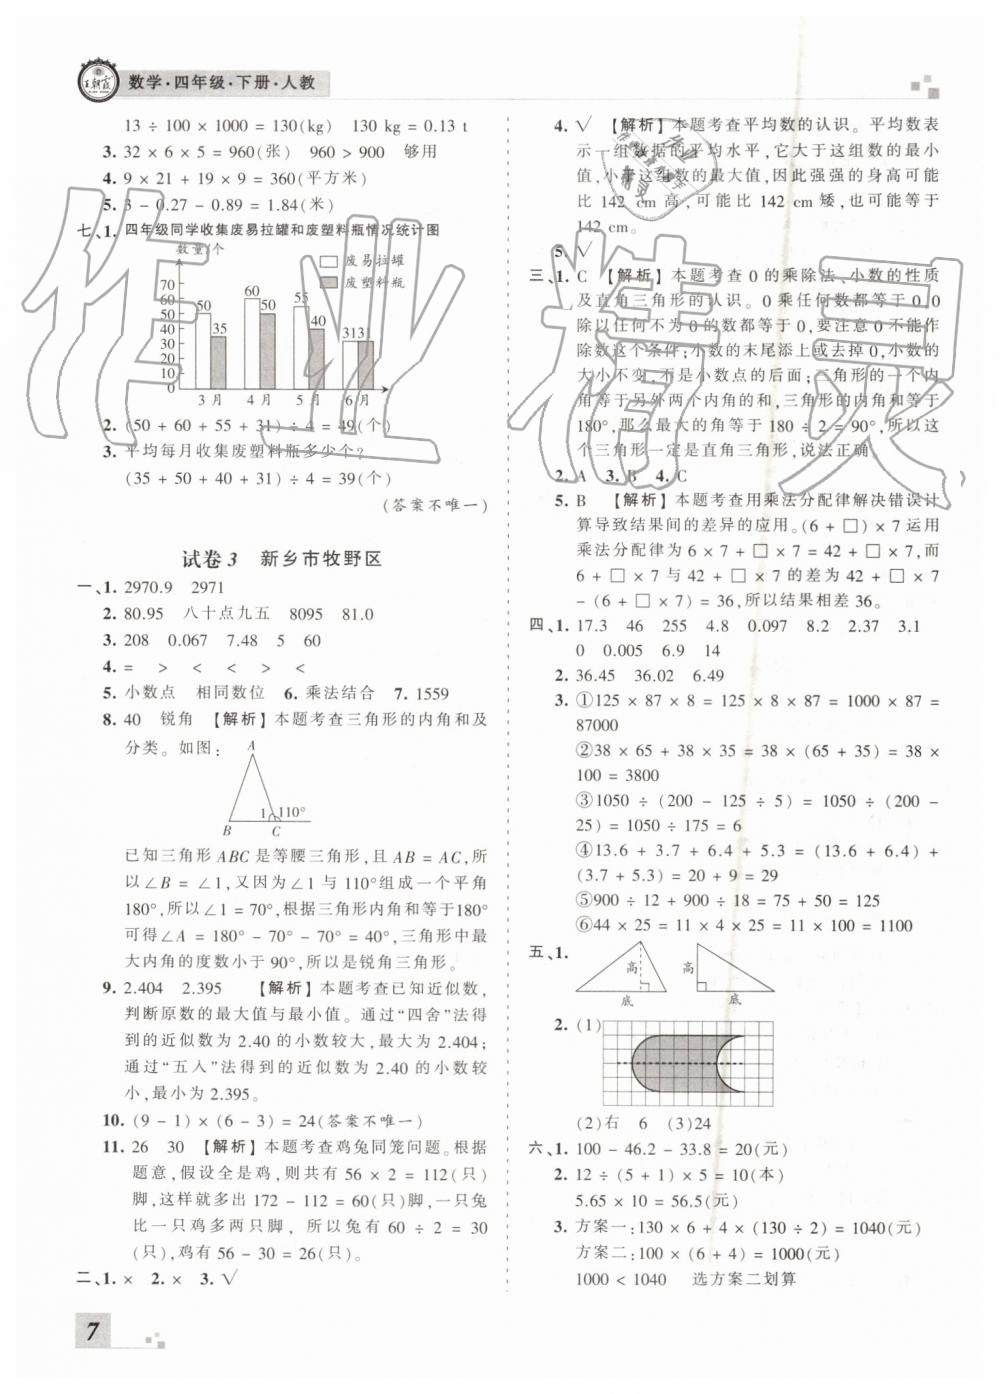 王朝霞
数学·四年级·下册·人教
13 ÷ 100 × 1000 = 130(kg)　130 kg = 0.13 t
3. 32 × 6 × 5 = 960(张)　960 > 900　够用
4. 9 × 21 + 19 × 9 = 360(平方米)
5. 3 - 0.27 - 0.89 = 1.84(米)
七、1. 四年级同学收集废易拉罐和废塑料瓶情况统计图
数量/个
废易拉罐
废塑料瓶
70
60
50
40
30
20
10
0
50 35 60 50 55 40 31 31
3月 4月 5月 6月 月份
2. (50 + 60 + 55 + 31) ÷ 4 = 49(个)
3. 平均每月收集废塑料瓶多少个?
(35 + 50 + 40 + 31) ÷ 4 = 39(个)
(答案不唯一)
试卷3　新乡市牧野区
一、1. 2970.9　2971
2. 80.95　八十点九五　8095　81.0
3. 208　0.067　7.48　5　60
4. =　>　<　<　>　<
5. 小数点　相同数位　6. 乘法结合　7. 1559
8. 40　锐角　【解析】本题考查三角形的内角和及
分类。如图:
A
1 110°
B C
已知三角形 ABC 是等腰三角形,且 AB = AC,所
以∠B = ∠1,又因为∠1 与 110°组成一个平角
180°,所以∠1 = 70°,根据三角形内角和等于180°
可得∠A = 180° - 70° - 70° = 40°,三角形中最
大内角的度数小于 90°,所以是锐角三角形。
9. 2.404　2.395　【解析】本题考查已知近似数,
判断原数的最大值与最小值。通过“四舍”法得
到的近似数为 2.40 的小数较大,最大为 2.404;
通过“五入”法得到的近似数为 2.40 的小数较
小,最小为 2.395。
10. (9 - 1) × (6 - 3) = 24(答案不唯一)
11. 26　30　【解析】本题考查鸡兔同笼问题。根据
题意,假设全是鸡,则共有 56 × 2 = 112(只)
脚,这样就多出 172 - 112 = 60(只)脚,一只兔
比一只鸡多两只脚，所以兔有 60 ÷ 2 = 30
(只),鸡有 56 - 30 = 26(只)。
二、1. ×　2. ×　3. √
7
4. √　【解析】本题考查平均数的认识。平均数表
示一组数据的平均水平,它大于这组数的最小
值,小于这组数的最大值,因此强强的身高可能
比 142 cm 高,可能比 142 cm 矮,也可能等于
142 cm。
5. √
三、1. C　【解析】本题考查 0 的乘除法、小数的性质
及直角三角形的认识。0 乘任何数都等于 0,0
除以任何不为 0 的数都等于 0,要注意 0 不能作
除数这个条件;小数的末尾添上或去掉 0,小数的
大小不变,不是小数点的后面;三角形的一个内
角等于另外两个内角的和,三角形的内角和等于
180°,那么最大的角等于 180 ÷ 2 = 90°,所以这
个三角形一定是直角三角形,说法正确。
2. A　3. B　4. C
5. B　【解析】本题考查用乘法分配律解决错误计
算导致结果间的差异的应用。(6 + □) × 7 运用
乘法分配律为 6 × 7 + □ × 7 = 42 + □ × 7,而
6 + □ × 7 与 42 + □ × 7 的差为 42 + □ × 7
-(6 + □ × 7) = 36,所以结果相差 36。
四、1. 17.3　46　255　4.8　0.097　8.2　2.37　3.1
0　0.005　6.9　14
2. 36.45　36.02　6.49
3. ①125 × 87 × 8 = 125 × 8 × 87 = 1000 × 87 =
87000
②38 × 65 + 38 × 35 = 38 × (65 + 35) = 38 ×
100 = 3800
③1050 ÷ (200 - 125 ÷ 5) = 1050 ÷ (200 -
25) = 1050 ÷ 175 = 6
④13.6 + 3.7 + 6.4 + 5.3 = (13.6 + 6.4) +
(3.7 + 5.3) = 20 + 9 = 29
⑤900 ÷ 12 + 900 ÷ 18 = 75 + 50 = 125
⑥44 × 25 = 11 × 4 × 25 = 11 × 100 = 1100
五、1.
高 底 高 底
2. (1)
(2)右　6　(3)24
六、1. 100 - 46.2 - 33.8 = 20(元)
2. 12 ÷ (5 + 1) × 5 = 10(本)
5.65 × 10 = 56.5(元)
3. 方案一:130 × 6 + 4 × (130 ÷ 2) = 1040(元)
方案二:100 × (6 + 4) = 1000(元)
1000 < 1040　选方案二划算
作业精灵